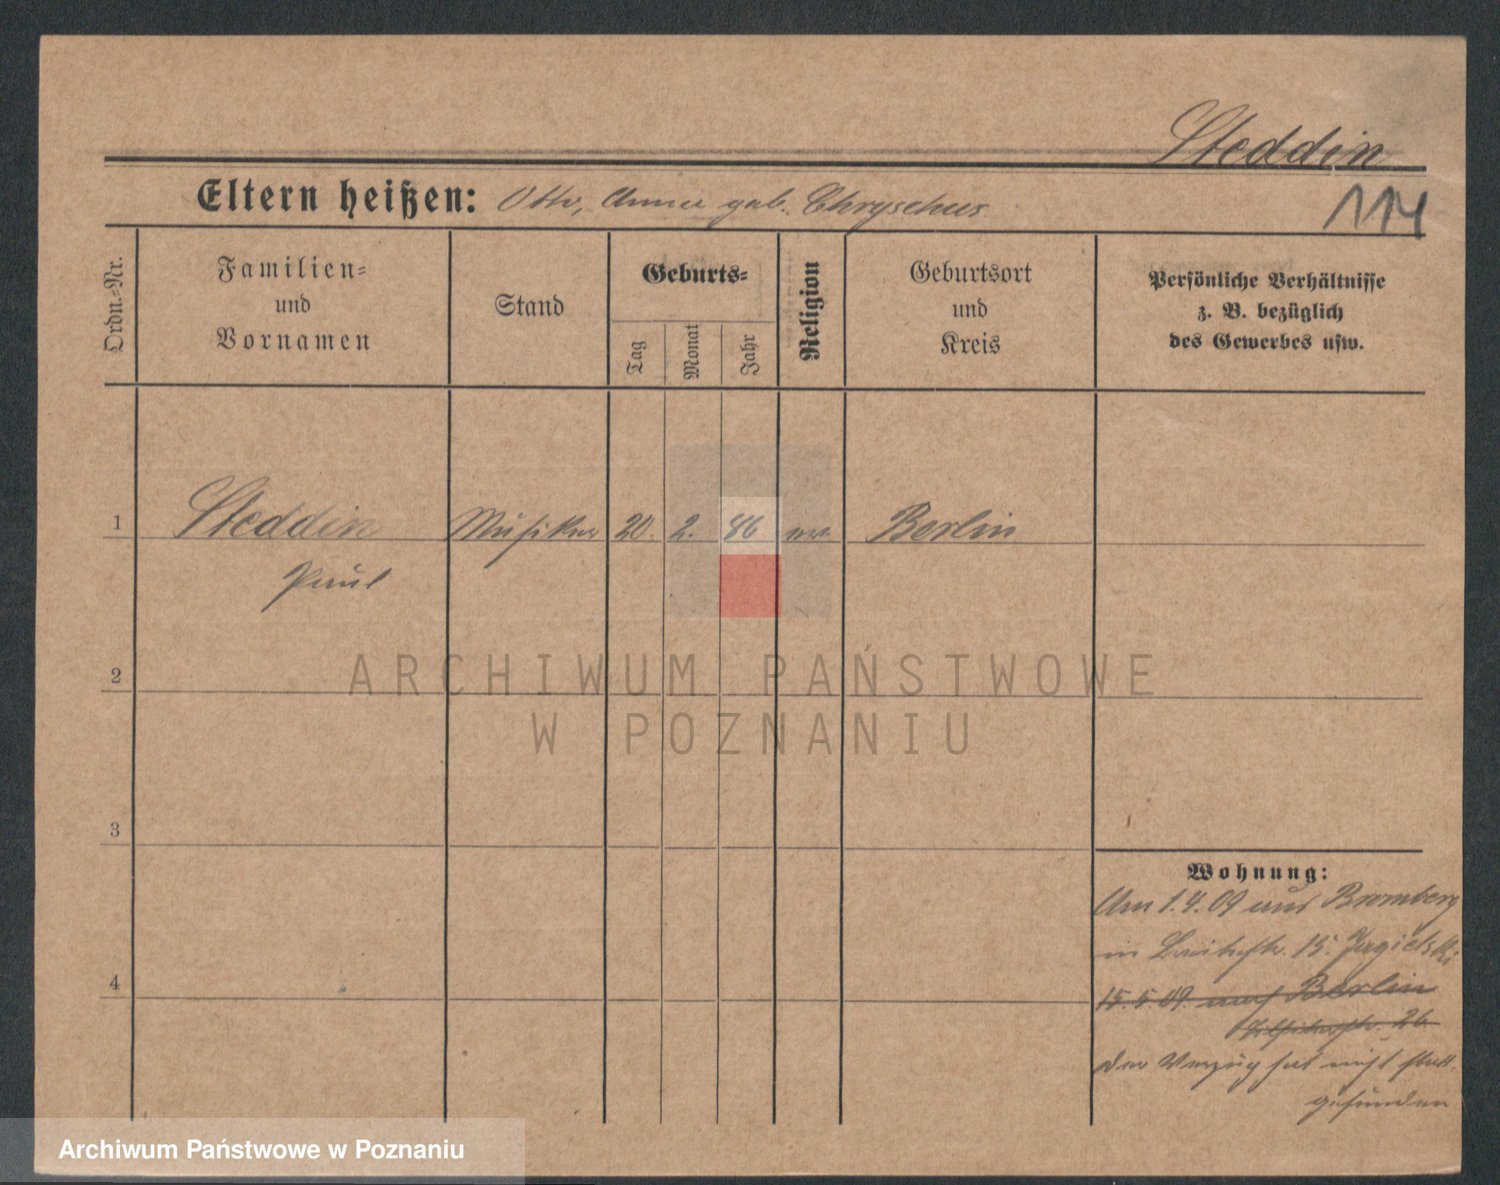 Steddin
Eltern heißen: Otto, Anna geb. Chryschus
114
Ordn.-Nr.
Familien-
und
Vornamen
Stand
Geburts-
Tag
Monat
Jahr
Religion
Geburtsort
und
Kreis
Persönliche Verhältnisse
z. B. bezüglich
des Gewerbes usw.
1
Steddin Musiker 20. 2. 86 ev. Berlin
Paul
2
3
4
Wohnung:
Am 1.4.09 aus Bromberg
in Breitestr. 15. Jagielski
15.5.09. nach Berlin
26
Der Verzug hat nicht statt-
gefunden
ARCHIWUM PAŃSTWOWE
W POZNANIU
Archiwum Państwowe w Poznaniu